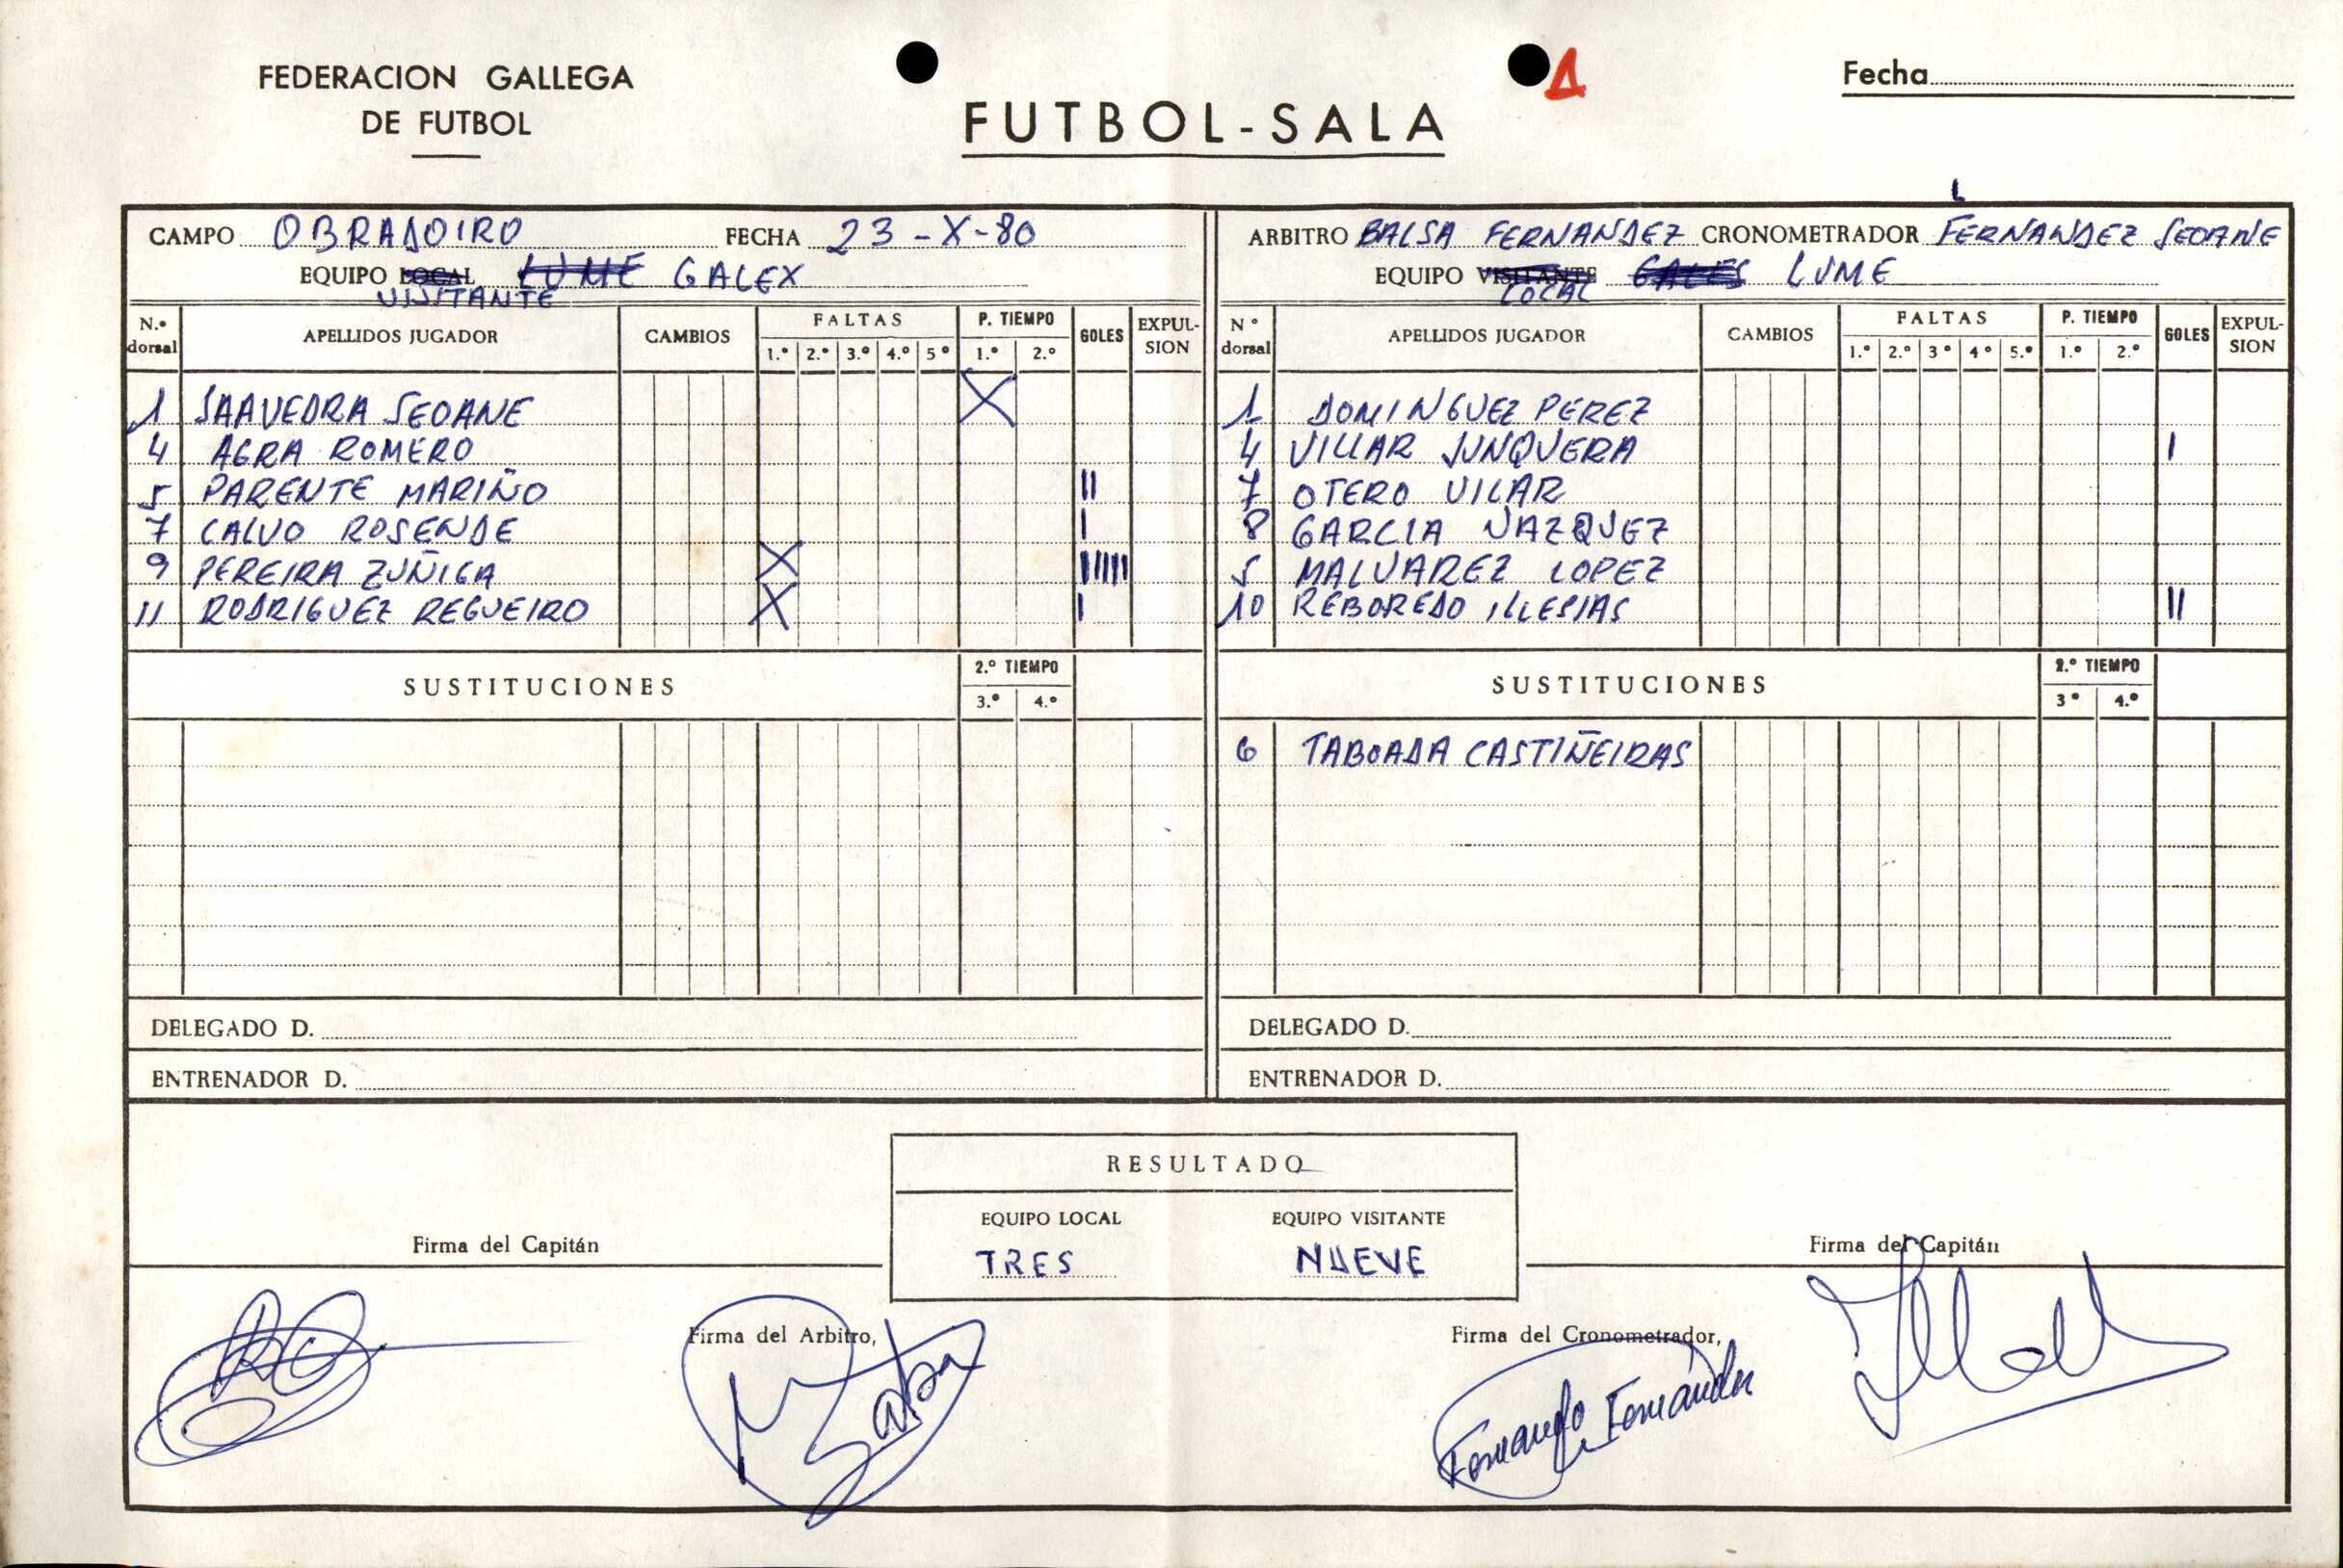 FEDERACION GALLEGA
DE FUTBOL
FUTBOL-SALA
1
Fecha
CAMPO OBRADOIRO FECHA 23-X-80
EQUIPO LOCAL LUME GALEX
VISITANTE
N.º dorsal APELLIDOS JUGADOR CAMBIOS FALTAS 1.º 2.º 3.º 4.º 5º P. TIEMPO 1.º 2.º GOLES EXPULSION
1 SAAVEDRA SEOANE X
4 AGRA ROMERO
5 PARENTE MARIÑO II
7 CALVO ROSENDE I
9 PEREIRA ZUÑIGA X IIIII
11 RODRIGUEZ REGUEIRO X I
SUSTITUCIONES 2.º TIEMPO 3.º 4.º
DELEGADO D.
ENTRENADOR D.
ARBITRO BALSA FERNANDEZ CRONOMETRADOR FERNANDEZ SEOANE
EQUIPO VISITANTE GALES LUME
LOCAL
Nº dorsal APELLIDOS JUGADOR CAMBIOS FALTAS 1.º 2.º 3º 4º 5.º P. TIEMPO 1.º 2.º GOLES EXPULSION
1 DOMINGUEZ PEREZ
4 VILLAR JUNQUERA I
7 OTERO VILAR
8 GARCIA VAZQUEZ
5 MALVAREZ LOPEZ
10 REBOREDO ILLESIAS II
SUSTITUCIONES 2.º TIEMPO 3º 4.º
6 TABOADA CASTIÑEIRAS
DELEGADO D.
ENTRENADOR D.
RESULTADO
EQUIPO LOCAL EQUIPO VISITANTE
TRES NUEVE
Firma del Capitán
Firma del Capitán
Firma del Arbitro,
Firma del Cronometrador,
Balsa
Fernando Fernández